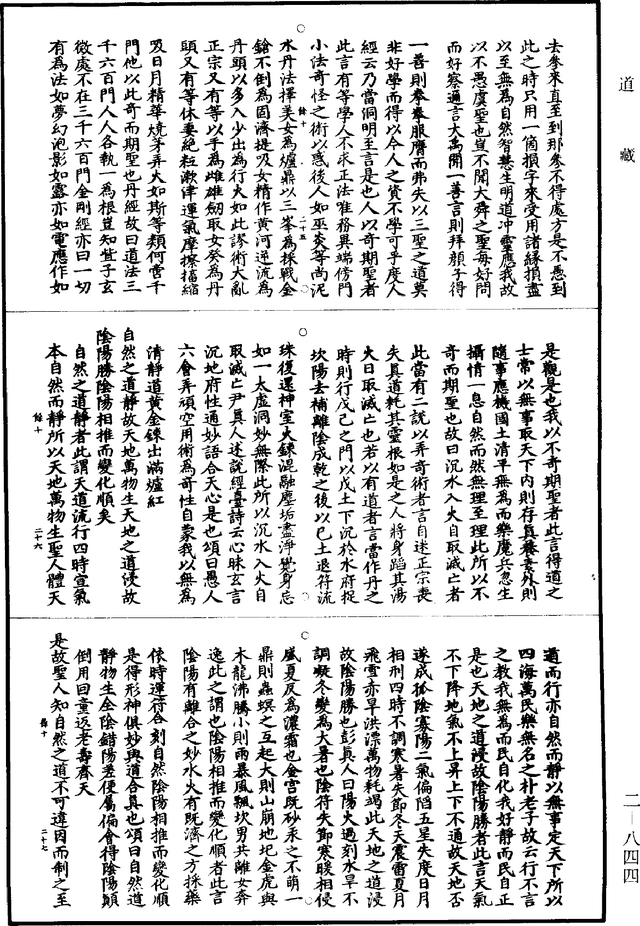 道藏
去參來直至到那參不得處方是不愚到
此之時只用一箇損字來受用諸緣損盡
以至無為自然智慧生明道冲靈應我故
以不愚虞聖也豈不聞大舜之聖每好問
而好察邇言大禹聞一善言則拜顏子得
一善則拳拳服膺而弗失以三聖之道莫
非好學而得以今人之資不學可乎度人
經云乃當洞明至言是也人以奇期聖者
此言有等學人不求正法唯務異端傍門
小法奇怪之術以惑後人如巫炎等尚泥
水丹法擇美女為爐鼎以三峯為採戰金
鎗不倒為固濟提吸女精作黃河逆流為
丹頭以多入少出為行火如此謬術大亂
正宗又有等以手為雌雄劒取女癸為丹
頭又有等休妻絕粒漱津運氣摩擦搐縮
及日月精華燒茅弄火如斯等類何啻千
門他以此奇而期聖也丹經故曰道法三
千六百門人人各執一為根豈知些子玄
微處不在三千六百門金剛經亦曰一切
有為法如夢幻泡影如露亦如電應作如
餘十
二十五
是觀是也我以不奇期聖者此言得道之
士常以無事取天下內則存真養素外則
隨事應機國土清平無為而樂魔兵忽生
攝情一息自然而然無理至理此所以不
奇而期聖也故曰沉水入火自取滅亡者
此當有二說以弄奇術者言自迷正宗喪
失真道耗其靈根如是之人將身蹈其湯
火日取滅亡也若以有道者言當作丹之
時則行戊己之門以戊土下沉於水府捉
坎陽去補離陰成乾之後以己土退符流
珠復還神室火鍊混融塵垢盡淨覺身忘
如一太虛洞妙無際此所以沉水入火自
取滅亡尹真人述說經臺詩云心昧玄言
沉地府性通妙語合天心是也頌曰愚人
六會弄頑空用術為奇性自蒙我以無為
清靜道黃金鍊出滿爐紅
自然之道靜故天地萬物生天地之道浸故
陰陽勝陰陽相推而變化順矣
自然之道靜者此謂天道流行四時宣氣
本自然而靜所以天地萬物生聖人體天
餘十
二十六
道而行亦自然而靜以無事定天下所以
四海萬民樂無名之朴老子故云行不言
之教我無為而民自化我好靜而民自正
是也天地之道浸故陰陽勝者此言天氣
不下降地氣不上昇上下不通故天地否
遂成孤陰寡陽二氣偏陷五星失度日月
相刑四時不調寒暑失節冬天震雷夏月
飛雪亦旱洪漂萬物耗竭此天地之道浸
故陰陽勝也彭真人曰陽火過刻水旱不
調凝冬變為大暑也陰符失節寒暖相侵
盛夏反為濃霜也金宫既砂汞之不萌一
鼎則蟲螟之互起大則山崩地圯金虎與
木龍沸騰小則雨暴風飄坎男共離女奔
逸此之謂也陰陽相推而變化順者此言
陰陽有離合之妙水火有既濟之方採藥
依時運符合刻自然陰陽相推而變化順
是得形神俱妙與道合真也頌曰自然道
靜物生全陰錯陽差便屬偏會得陰陽顛
倒用回童返老壽齊天
是故聖人知自然之道不可違因而制之至
餘十
二十七
二—八四四